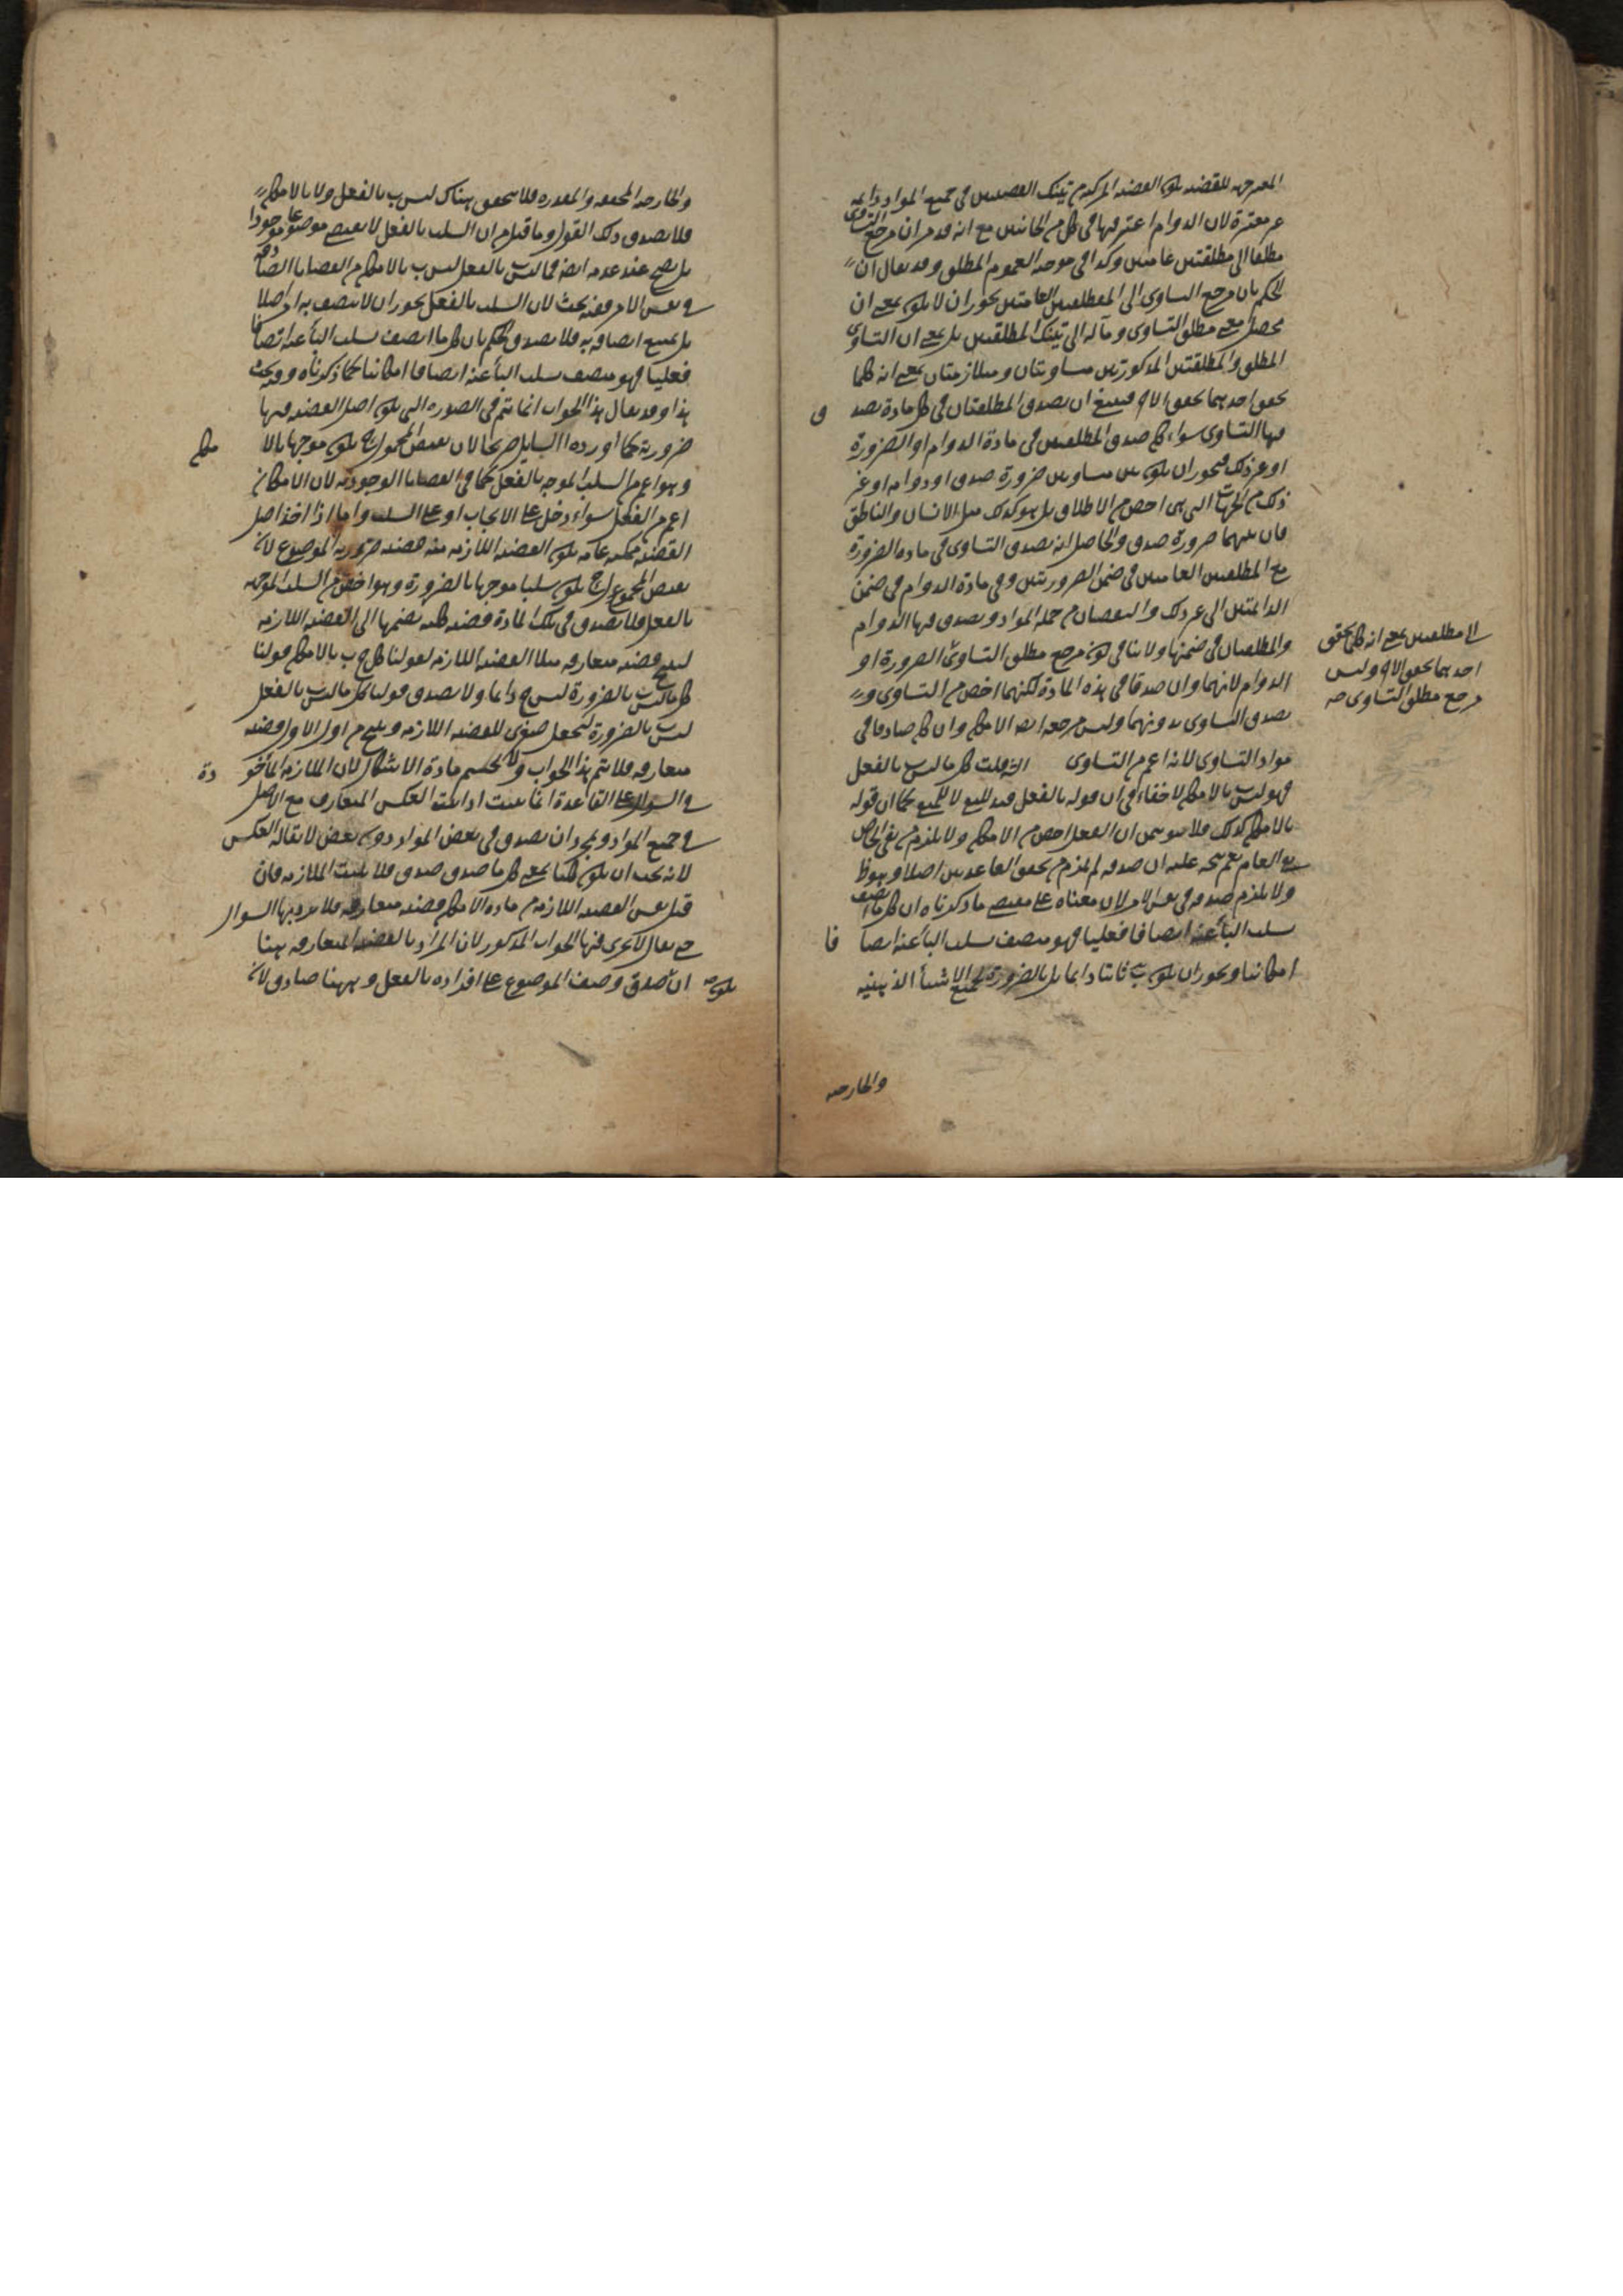 المعبر جهة للقضية يكون القضية المركبة من تينك القضيتين في جميع المواد دائمة
غير معتبرة لان الدوام اعتبر فيها في كل من الجانبين مع انه قد مر ان مرجع التساوي
مطلقا الى مطلقتين عامتين وكذا في موجبة العموم المطلق وقد يقال ان
الحكم بان مرجع التساوي الى المطلقتين العامتين يجوز ان لا يكون بمعنى ان
محصل معنى مطلق التساوي ومآله الى تينك المطلقتين بل بمعنى ان التساوي
المطلق والمطلقتين المذكورتين متساويتان ومتلازمتان بمعنى انه كلما
تحقق احدهما تحقق الآخر فينبغي ان يصدق المطلقتان في كل مادة يصدق
فيها التساوي سواء كان صدق المطلقتين في مادة الدوام او الضرورة
او غير ذلك فيجوز ان يكون بين متساويين ضرورة صدق او دوامه او غير
ذلك من الجهات التي هي اخص من الاطلاق بل هو كذلك مثل الانسان والناطق
فان بينهما ضرورة صدق والحاصل انه يصدق التساوي في مادة الضرورة
مع المطلقتين العامتين في ضمن الضروريتين وفي مادة الدوام في ضمن
الدائمتين الى غير ذلك والنقيضان من جملة المواد ويصدق فيها الدوام
والمطلقتان في ضمنها ولا ينافي كون مرجع مطلق التساوي الضرورة او
الدوام لانهما وان صدقا في هذه المادة لكنهما اخص من التساوي و
يصدق التساوي بدونهما وليس مرجعه ايضا الامكان وان كان صادقا في
مواد التساوي لانه اعم من التساوي قلت كل ما ليس ب بالفعل
فهو ليس ب بالامكان لا خفاء في ان قوله بالفعل قيد للنفي لا للمنفي كما ان قوله
بالامكان كذلك فلا يتوهمن ان الفعل اخص من الامكان ولا يلزم من نفي الخاص
نفي العام نعم يتجه عليه ان صدقه لم يلزم من تحقق القاعدتين اصلا وهو ظ
ولا يلزم صدقه في نفس الامر لان معناه على مقتضى ما ذكرناه ان كل ما اتصف
سلب الباء عنه اتصافا فعليا فهو متصف سلب الباء عنه اتصافا
امكانيا ويجوز ان يكون ب ثابتا دائما بل بالضرورة لجميع الاشياء الذهنية
والخارجية
لا مطلقتين بمعنى انه كلما تحقق
احدهما تحقق الآخر وليس
مرجع مطلق التساوي صح
والخارجية المحققة والمقدرة فلا يتحقق هناك ليس ب بالفعل ولا بالامكان
فلا يصدق ذلك القول وما قيل من ان السلب بالفعل لا يقتضي موضوعا موجودا
بل يصح عند عدمه ايضا فما ليس ب بالفعل ليس ب بالامكان من القضايا الصادقة
في نفس الامر ففيه بحث لان السلب بالفعل يجوز ان لا يتصف به امر اصلا
بل يمتنع اتصافه به فلا يصدق الحكم بان كل ما اتصف سلب الباء عنه اتصافا
فعليا فهو متصف سلب الباء عنه اتصافا امكانيا كما ذكرناه وفيه بحث
هذا وقد يقال هذا الجواب انما يتم في الصورة التي يكون اصل القضية فيها
ضرورية كما اورده السائل صريحا لان نقيض المحمول ح يكون موجها بالامكان
وهو اعم من السلب الموجه بالفعل كما في القضايا الوجودية لان الامكان
اعم من الفعل سواء دخل على الايجاب او على السلب واما اذا اخذ اصل
القضية ممكنة عامة يكون القضية اللازمة منه قضية ضرورية الموضوع لان
نقيض المحمول ح يكون سلبا موجها بالضرورة وهو اخص من السلب الموجه
بالفعل فلا يصدق في تلك المادة قضية كلية بضمها الى القضية اللازمة
لينتج قضية متعارفة مثلا القضية اللازمة لقولنا كل ج ب بالامكان قولنا
كل ما ليس ب بالضرورة ليس ج دائما ولا يصدق قولنا كل ما ليس ب بالفعل
ليس ب بالضرورة ليجعل صغرى للقضية اللازمة وينتج من اول الاول قضية
متعارفة فلا يتم هذا الجواب ولا يحسم مادة الاشكال لان الملازمة المأخوذة
في السؤال على القاعدة انما يثبت اذا ثبت العكس المتعارف مع الاصل
في جميع المواد وبمجرد ان يصدق في بعض المواد دون بعض لا يقال له العكس
لانه يجب ان يكون كليا بمعنى كل ما صدق صدق فلا يثبت الملازمة فان
قيل نفس القضية اللازمة من مادة الامكان قضية متعارفة فلا يرد بها السؤال
حتى يقال لا يجري فيها الجواب المذكور لان المراد بالقضية المتعارفة هنا
ان يكون صدق وصف الموضوع على افراده بالفعل وههنا صادق لان